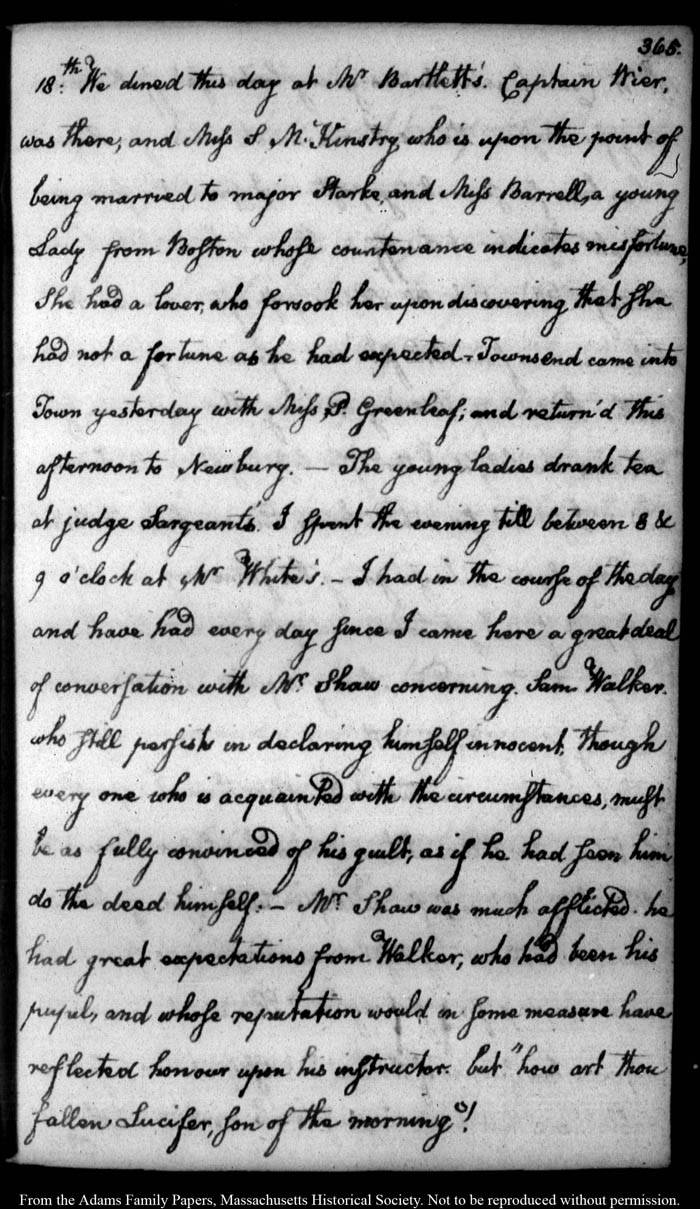 365.
18.th We dined this day at Mr Bartlett's. Captain Wier,
was there, and Miss S. McKinstry, who is upon the point of
being married to major Starke, and Miss Barrell, a young
Lady from Boston whose countenance indicates misfortune,
She had a lover, who forsook her upon discovering that she
had not a fortune as he had expected. Townsend came into
Town yesterday with Miss P. Greenleaf; and return'd this
afternoon to Newbury. — The young ladies drank tea
at judge Sargeant's. I spent the evening till between 8 &
9 o'clock at Mr White's. — I had in the course of the day
and have had every day since I came here a great deal
of conversation with Mr Shaw concerning. Sam Walker.
who still persists in declaring himself innocent, though
every one who is acquainted with the circumstances, must
be as fully convinced of his guilt, as if he had seen him
do the deed himself. — Mr Shaw was much afflicted. he
had great expectations from Walker, who had been his
pupil, and whose reputation would in some measure have
reflected honour upon his instructor. but "how art thou
fallen Lucifer, son of the morning"!
From the Adams Family Papers, Massachusetts Historical Society. Not to be reproduced without permission.